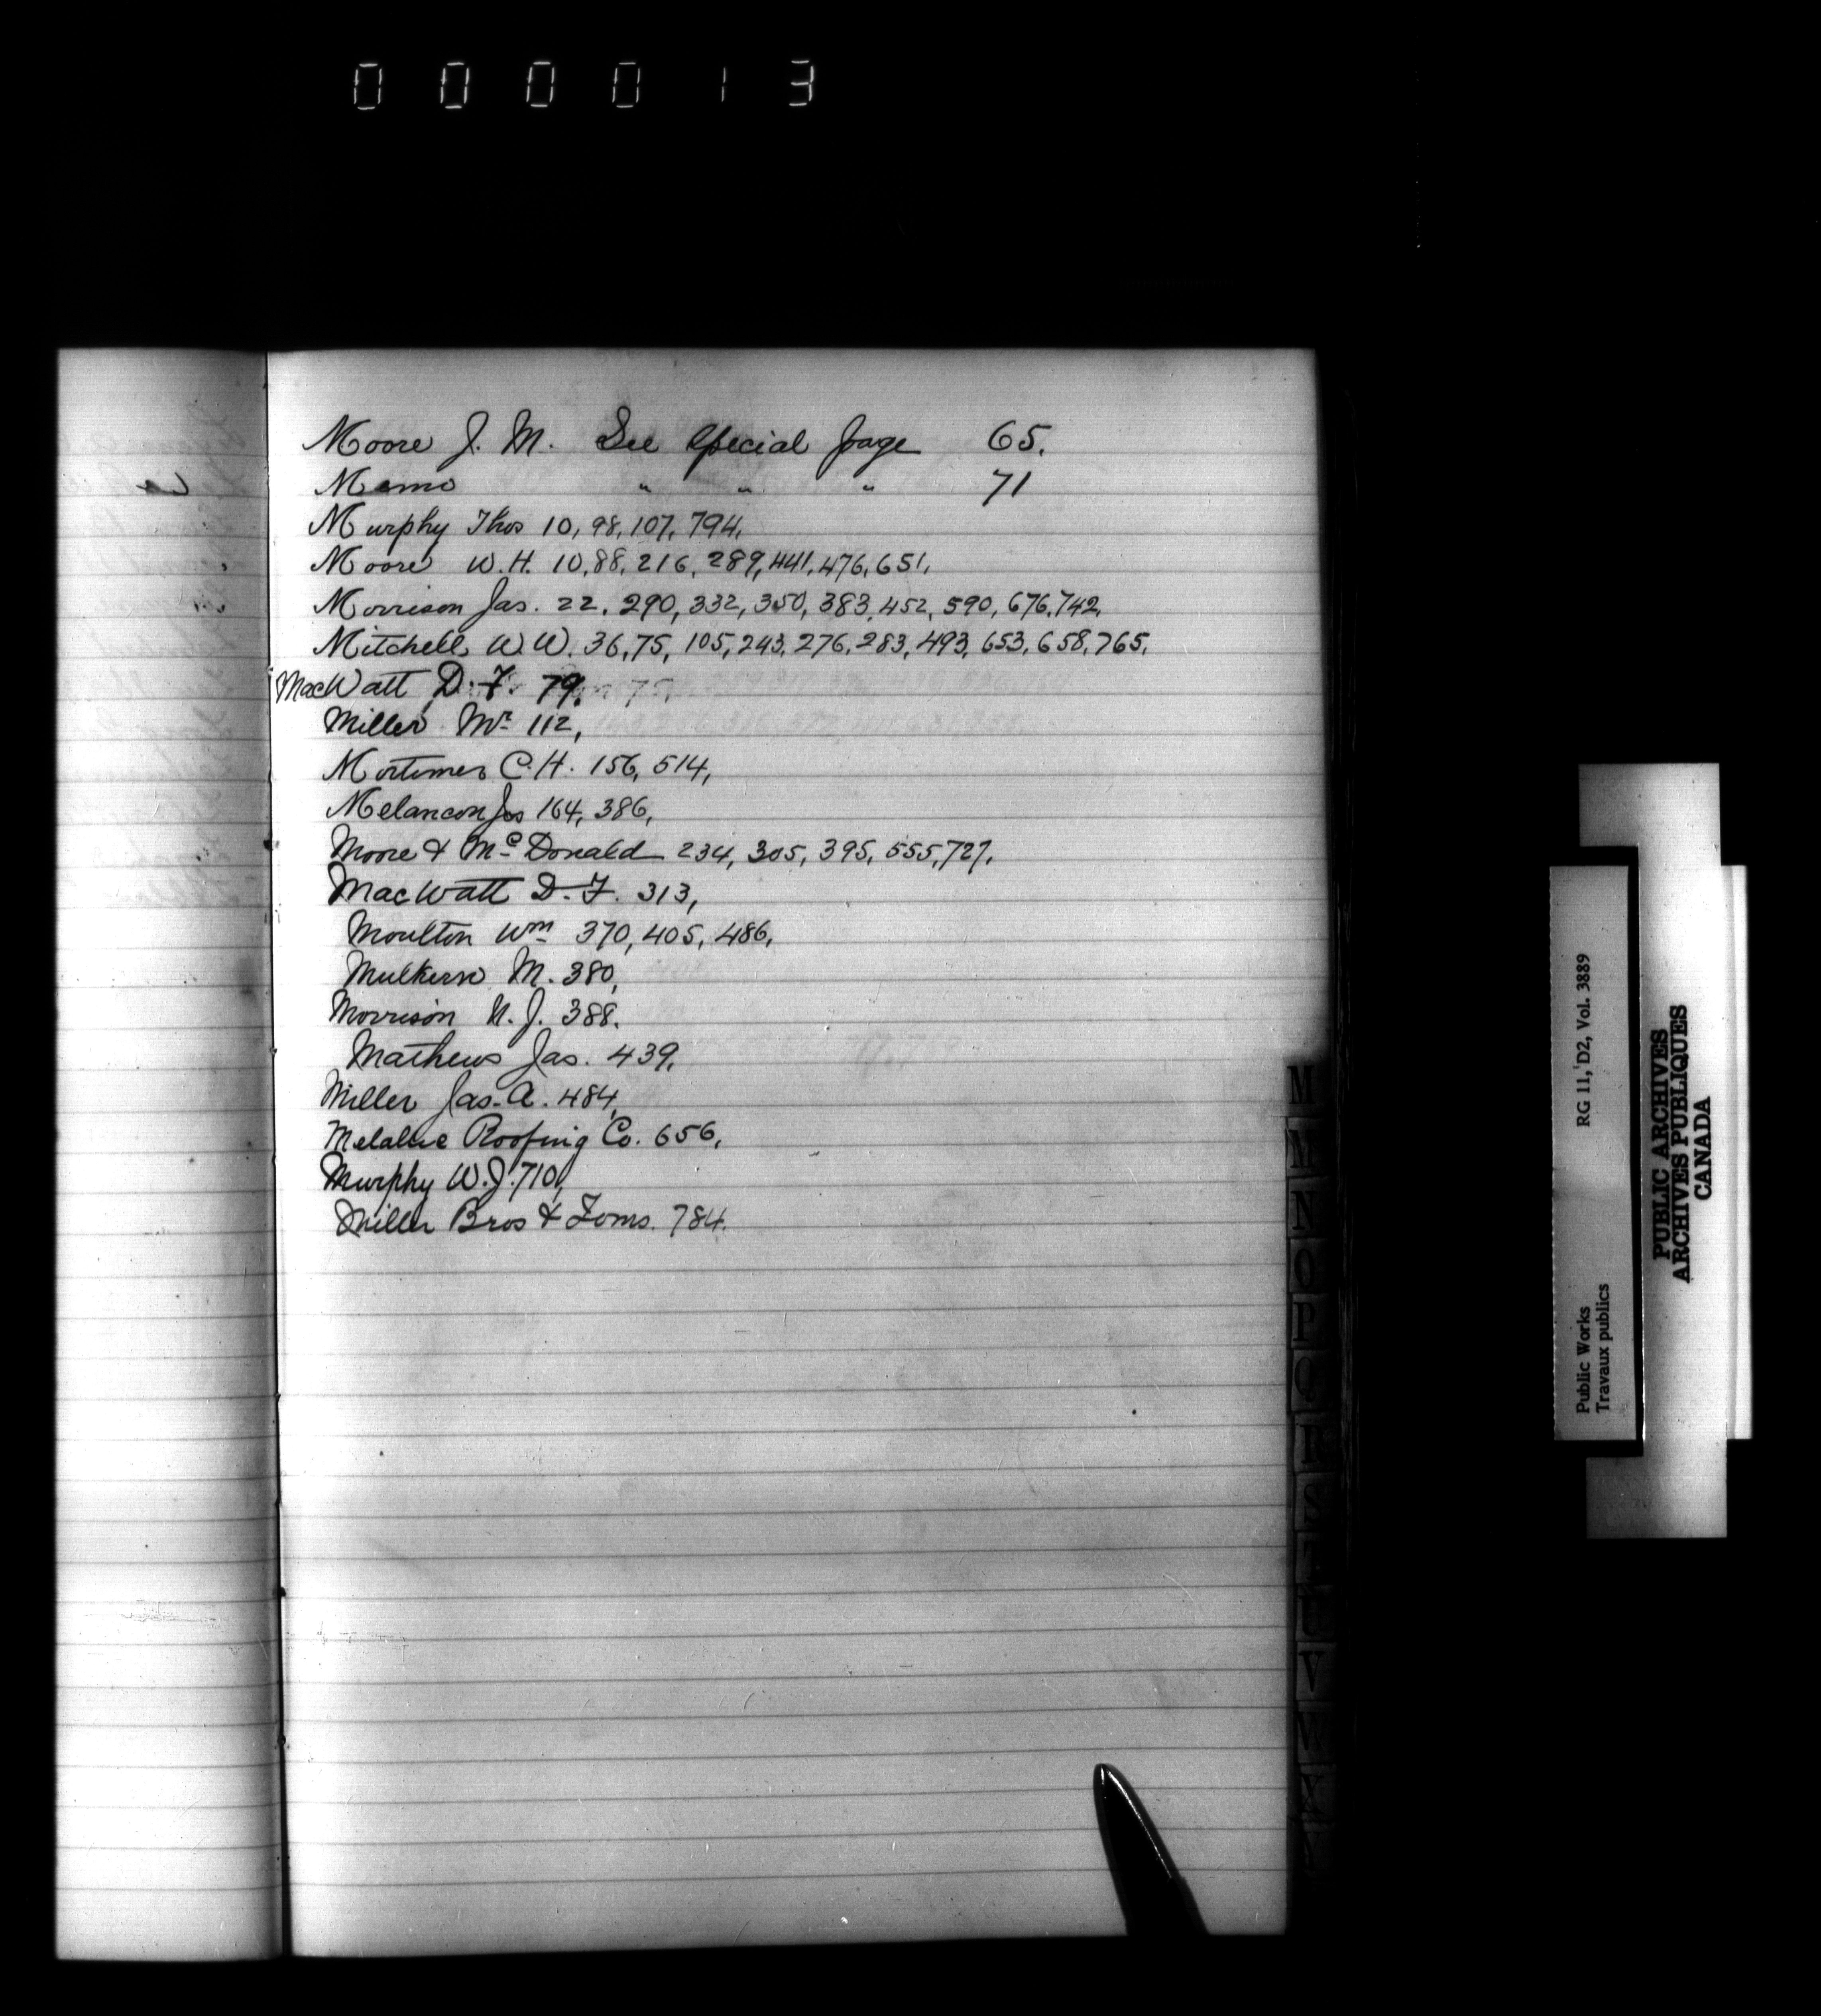 000013
Moore J. M. See Special page 65.
Memo " " " 71
Murphy Thos 10, 98, 107, 794,
Moore W. H. 10, 88, 216, 289, 441, 476, 651,
Morrison Jas. 22, 290, 332, 350, 383, 452, 590, 676, 742,
Mitchell W. W. 36, 75, 105, 243, 276, 283, 493, 653, 658, 765,
MacWatt D. F. 79.
Miller Mr 112,
Mortimer C. H. 156, 514,
Melancon Jos 164, 386,
Moore & McDonald 234, 305, 395, 555, 727,
MacWatt D. F. 313,
Moulton Wm 370, 405, 486,
Mulkern M. 380,
Morrison N. J. 388.
Mathews Jas. 439,
Miller Jas. A. 484,
Roofing Co. 656,
Murphy W. J. 710,
Miller Bros & Toms. 784.
M
M
N
O
P
Q
R
S
T
U
V
W
RG 11, D2, Vol. 3889
Public Works
Travaux publics
PUBLIC ARCHIVES
ARCHIVES PUBLIQUES
CANADA